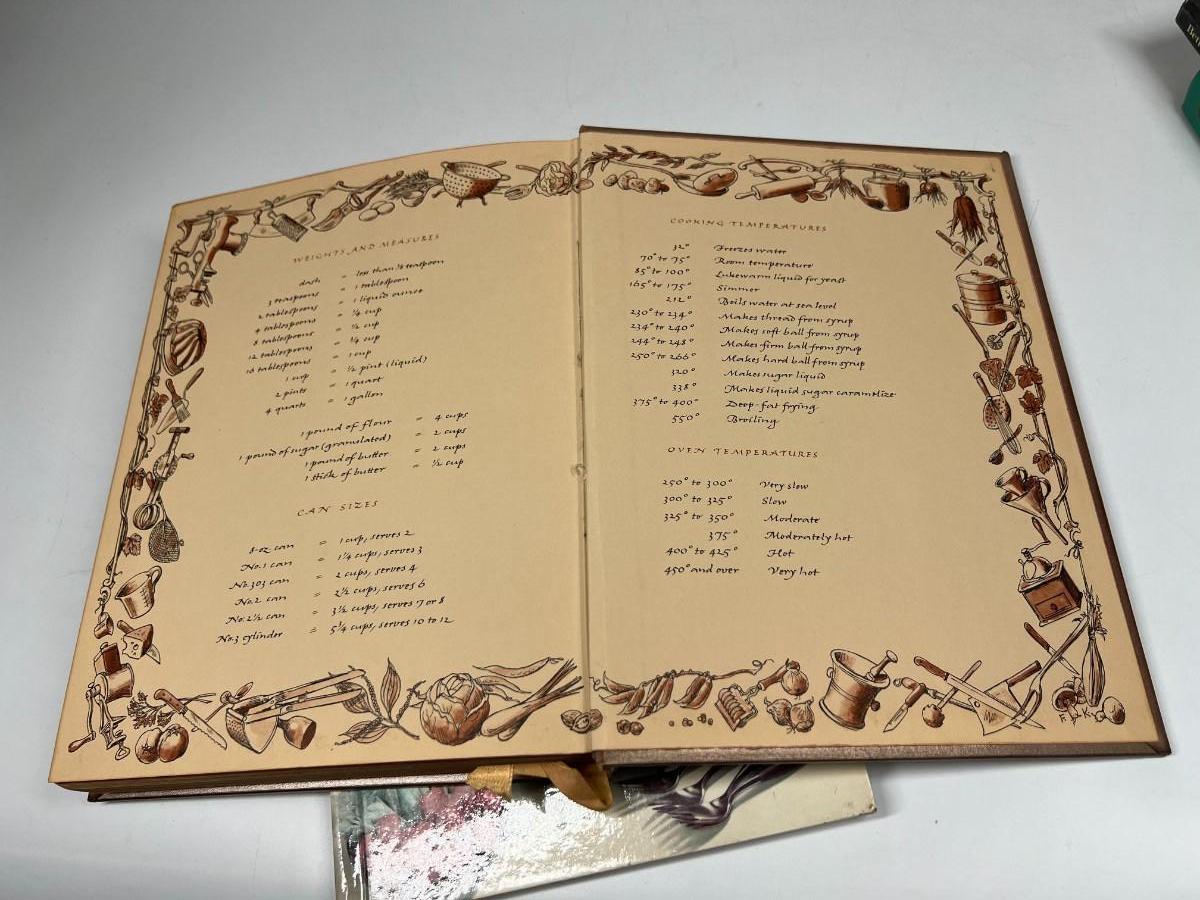 WEIGHTS AND MEASURES
dash = less than ⅛ teaspoon
3 teaspoons = 1 tablespoon
2 tablespoons = 1 liquid ounce
4 tablespoons = ¼ cup
8 tablespoons = ½ cup
12 tablespoons = ¾ cup
16 tablespoons = 1 cup
1 cup = ½ pint (liquid)
2 pints = 1 quart
4 quarts = 1 gallon
1 pound of flour = 4 cups
1 pound of sugar (granulated) = 2 cups
1 pound of butter = 2 cups
1 stick of butter = ½ cup
CAN SIZES
8-oz can = 1 cup, serves 2
No.1 can = 1¼ cups, serves 3
No.303 can = 2 cups, serves 4
No.2 can = 2½ cups, serves 6
No.2½ can = 3½ cups, serves 7 or 8
No.3 cylinder = 5¾ cups, serves 10 to 12
COOKING TEMPERATURES
32° Freezes water
70° to 75° Room temperature
85° to 100° Lukewarm liquid for yeast
165° to 175° Simmer
212° Boils water at sea level
230° to 234° Makes thread from syrup
234° to 240° Makes soft ball from syrup
244° to 248° Makes firm ball from syrup
250° to 266° Makes hard ball from syrup
320° Makes sugar liquid
338° Makes liquid sugar caramelize
375° to 400° Deep-fat frying
550° Broiling
OVEN TEMPERATURES
250° to 300° Very slow
300° to 325° Slow
325° to 350° Moderate
375° Moderately hot
400° to 425° Hot
450° and over Very hot